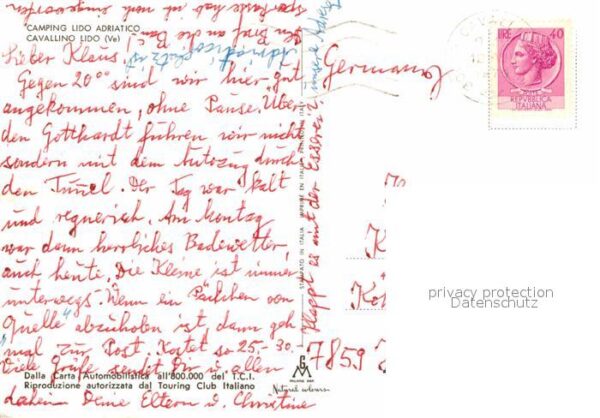 CAMPING LIDO ADRIATICO
CAVALLINO LIDO (Ve)
Lieber Klaus,
Gegen 20° sind wir hier gut
angekommen, ohne Pause. Über
den Gotthardt fuhren wir nicht
sondern mit dem Autozug durch
den Tunnel. Der Tag war kalt
und regnerisch. Am Montag
war dann herrliches Badewetter,
auch heute. Die Kleine ist immer
unterwegs. Wenn ein Päckchen von
"Quelle" abzuholen ist, dann geh
mal zur Post. Kostet so 25.-30.
Viele Grüße sendet Dir u. allen
daheim Deine Eltern u. Christine
Dalla Carta Automobilistica all'800.000 del T.C.I.
Riproduzione autorizzata dal Touring Club Italiano
Klappt es mit der Esserei?
unsere Adresse
STAMPATO IN ITALIA IMPRIMÉ EN ITALIE
Germany
7859
MILANO
Natural colours
LIRE 40
REPVBBLICA
ITALIANA
privacy protection
Datenschutz